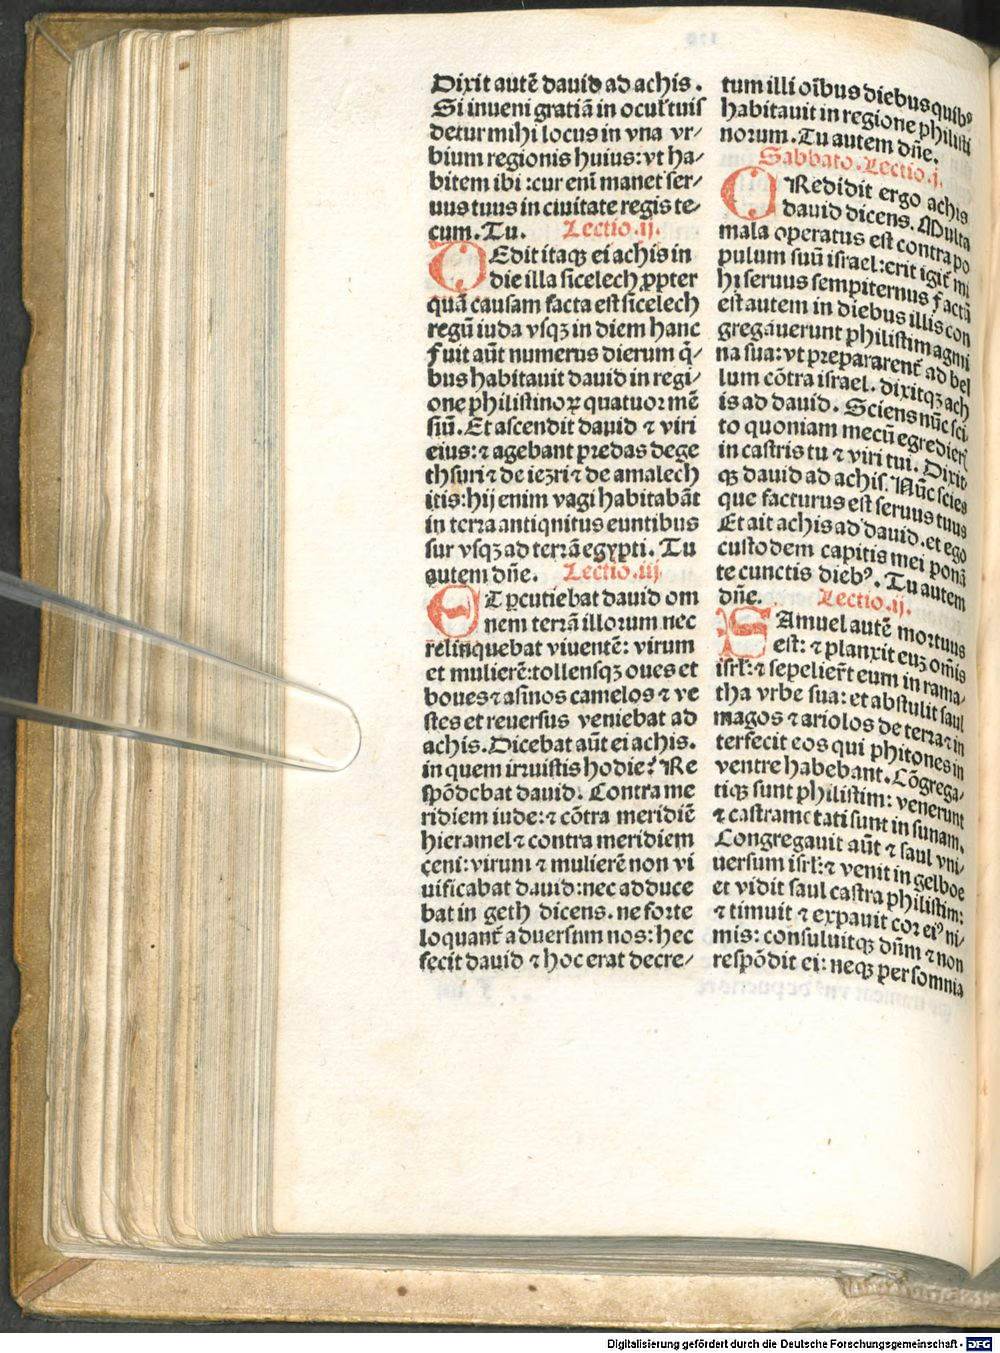 Dixit autē dauid ad achis.
Si inueni gratiā in ocul' tuis
detur mihi locus in vna vr⸗
bium regionis huius: vt ha⸗
bitem ibi: cur enī manet ser⸗
uus tuus in ciuitate regis te⸗
cum. Tu. Lectio .ij.
DEdit itaqꝫ ei achis in
die illa sicelech ꝓpter
quā causam facta est sicelech
regū iuda vsqꝫ in diem hanc
Fuit aūt numerus dierum q̇⸗
bus habitauit dauid in regi⸗
one philistinoꝝ quatuor mē
siū. Et ascendit dauid ⁊ viri
eius: ⁊ agebant predas de ge
thsuri ⁊ de iezri ⁊ de amalech
itis: hij enim vagi habitabāt
in terra antiqnitus euntibus
sur vsqꝫ ad terrā egypti. Tu
autem dn̄e. Lectio .iij.
ET ꝑcutiebat dauid om
nem terrā illorum nec
relinquebat viuentē: virum
et mulierē: tollensqꝫ oues et
boues ⁊ asinos camelos ⁊ ve
stes et reuersus veniebat ad
achis. Dicebat aūt ei achis.
in quem irruistis hodie? Re
spōdebat dauid. Contra me
ridiem iude: ⁊ cōtra meridiē
hieramel ⁊ contra meridiem
ceni: virum ⁊ mulierē non vi
uificabat dauid: nec adduce
bat in geth dicens. ne forte
loquant᷑ aduersum nos: hec
fecit dauid ⁊ hoc erat decre⸗
tum illi oībus diebus quibꝰ
habitauit in regione philisti
norum. Tu autem dn̄e.
Sabbato. Lectio .j.
CRedidit ergo achis
dauid dicens. Multa
mala operatus est contra po
pulum suū israel: erit igit᷑ mi
hi seruus sempiternus factū
est autem in diebus illis con
gregauerunt philistim agmi
na sua: vt prepararent᷑ ad bel
lum cōtra israel. dixitqꝫ ach
is ad dauid. Sciens nūc sci
to quoniam mecū egredier᷑
in castris tu ⁊ viri tui. Dixit
qꝫ dauid ad achis. Nūc scies
que facturus est seruus tuus
Et ait achis ad dauid. et ego
custodem capitis mei ponā
te cunctis diebꝰ. Tu autem
dn̄e. Lectio .ij.
SAmuel autē mortuus
est: ⁊ planxit euꝫ om̄is
isrl': ⁊ sepelier̄t eum in rama⸗
tha vrbe sua: et abstulit saul
magos ⁊ ariolos de terra ⁊ in
terfecit eos qui phitones in
ventre habebant. Cōgrega⸗
tiqꝫ sunt philistim: venerunt
⁊ castrametati sunt in sunam.
Congregauit aūt ⁊ saul vni⸗
uersum isrl': ⁊ venit in gelboe
et vidit saul castra philistim:
⁊ timuit ⁊ expauit cor eiꝰ ni⸗
mis: consuluitqꝫ dn̄m ⁊ non
respōdit ei: neqꝫ per somnia
Digitalisierung gefördert durch die Deutsche Forschungsgemeinschaft - DFG